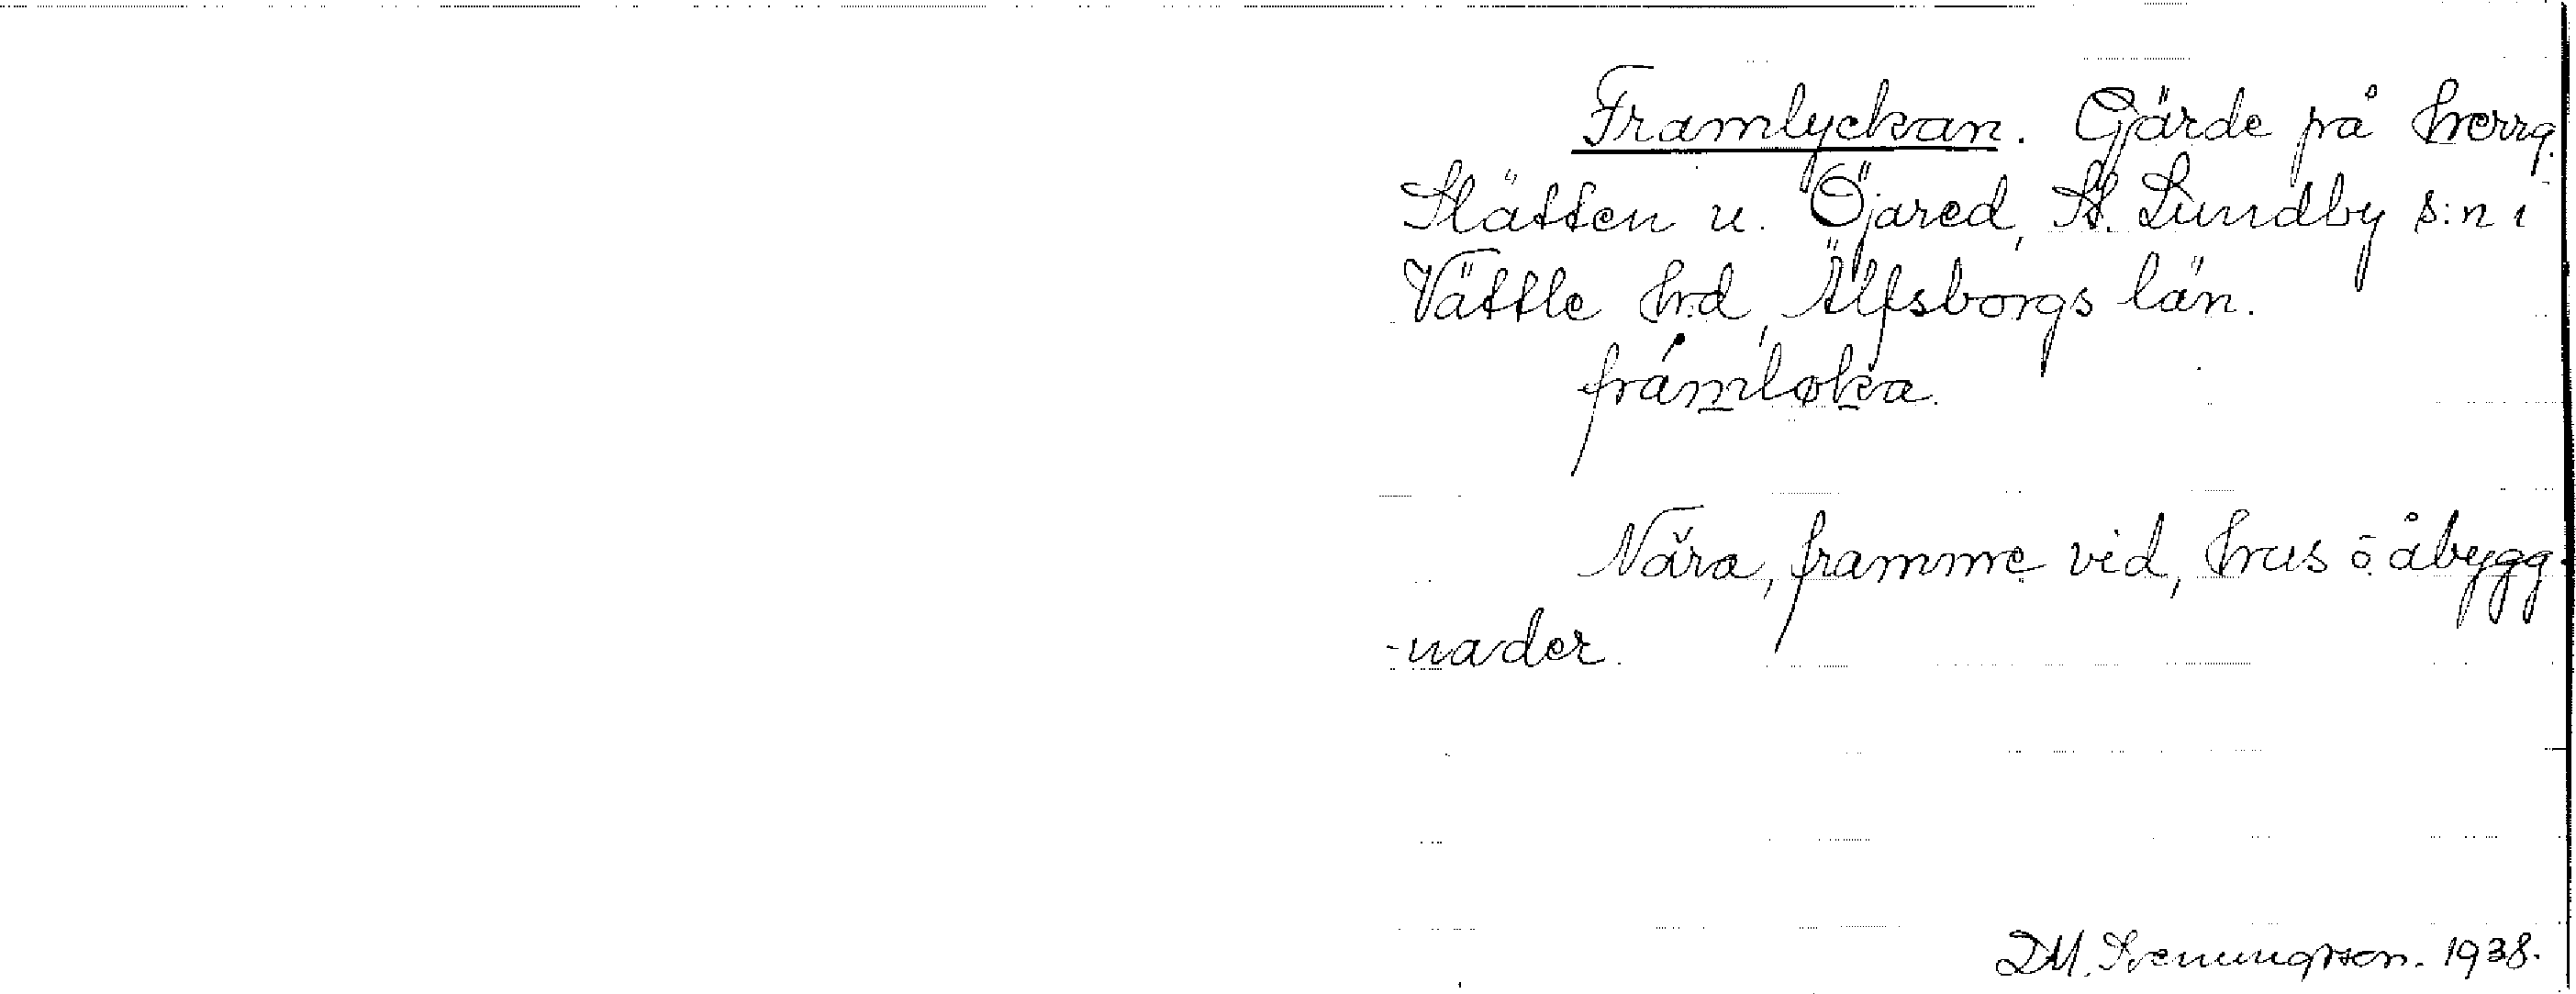 Framlyckan. Gärde på herrg.
Slätten u. Öjared, St. Lundby s:n i
Vättle hd, Älfsborgs län.
frámløka.
Nära, framme vid, hus o. åbygg-
-nader.
D.M. Svenningsson. 1938.